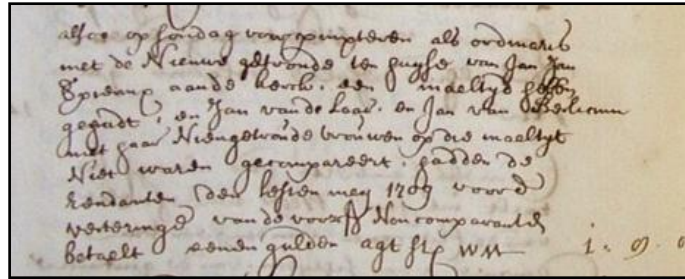 alsoo op sondag voor pinxteren als ordinaris
met de Nieuwe getroude ten huyse van Jan Jan
aande kerck, een maeltyd hebben
gehadt, en Jan vande Laar, en Jan van Berlicum
met haar Nieuwgetroude vrouwen op die maeltyt
Niet waren gecompareert, hadden de
Rendanten den lesten mey 1709 voor d
verteringe van de voorsz Noncomparanten
betaelt eenen gulden agt st